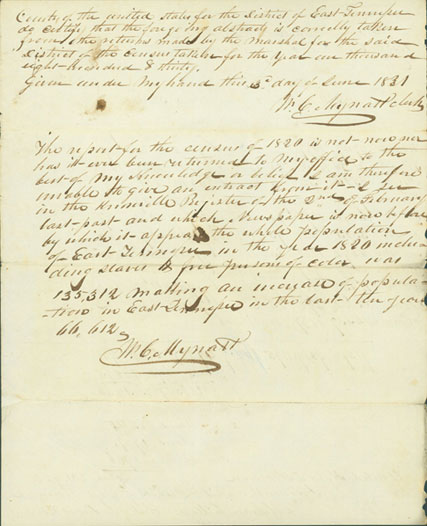 County of the united States for the District of East-Tennessee
do certify that the foregoing abstract is correctly taken
from the returns made by the marshal for the said
District of the Census taken for the year one thousand
eight-Hundred & thirty.
Given under my hand this 3d day of June 1831
Wm C. Mynatt Clerk
The report for the census of 1820 is not now nor
has it ever been returned to my office to the
best of my Knowledge or belief I am therefore
unable to give an extract from it - I see
in the Knoxville Register of the 2nd of February
last-past and which News paper is now before me
by which it appears the whole population
of East Tennessee in the year 1820 inclu-
ding slaves & free persons of color was
135,312 making an increase of popula-
-tion in East-Tennessee in the last ten years
66,612,
Wm C. Mynatt